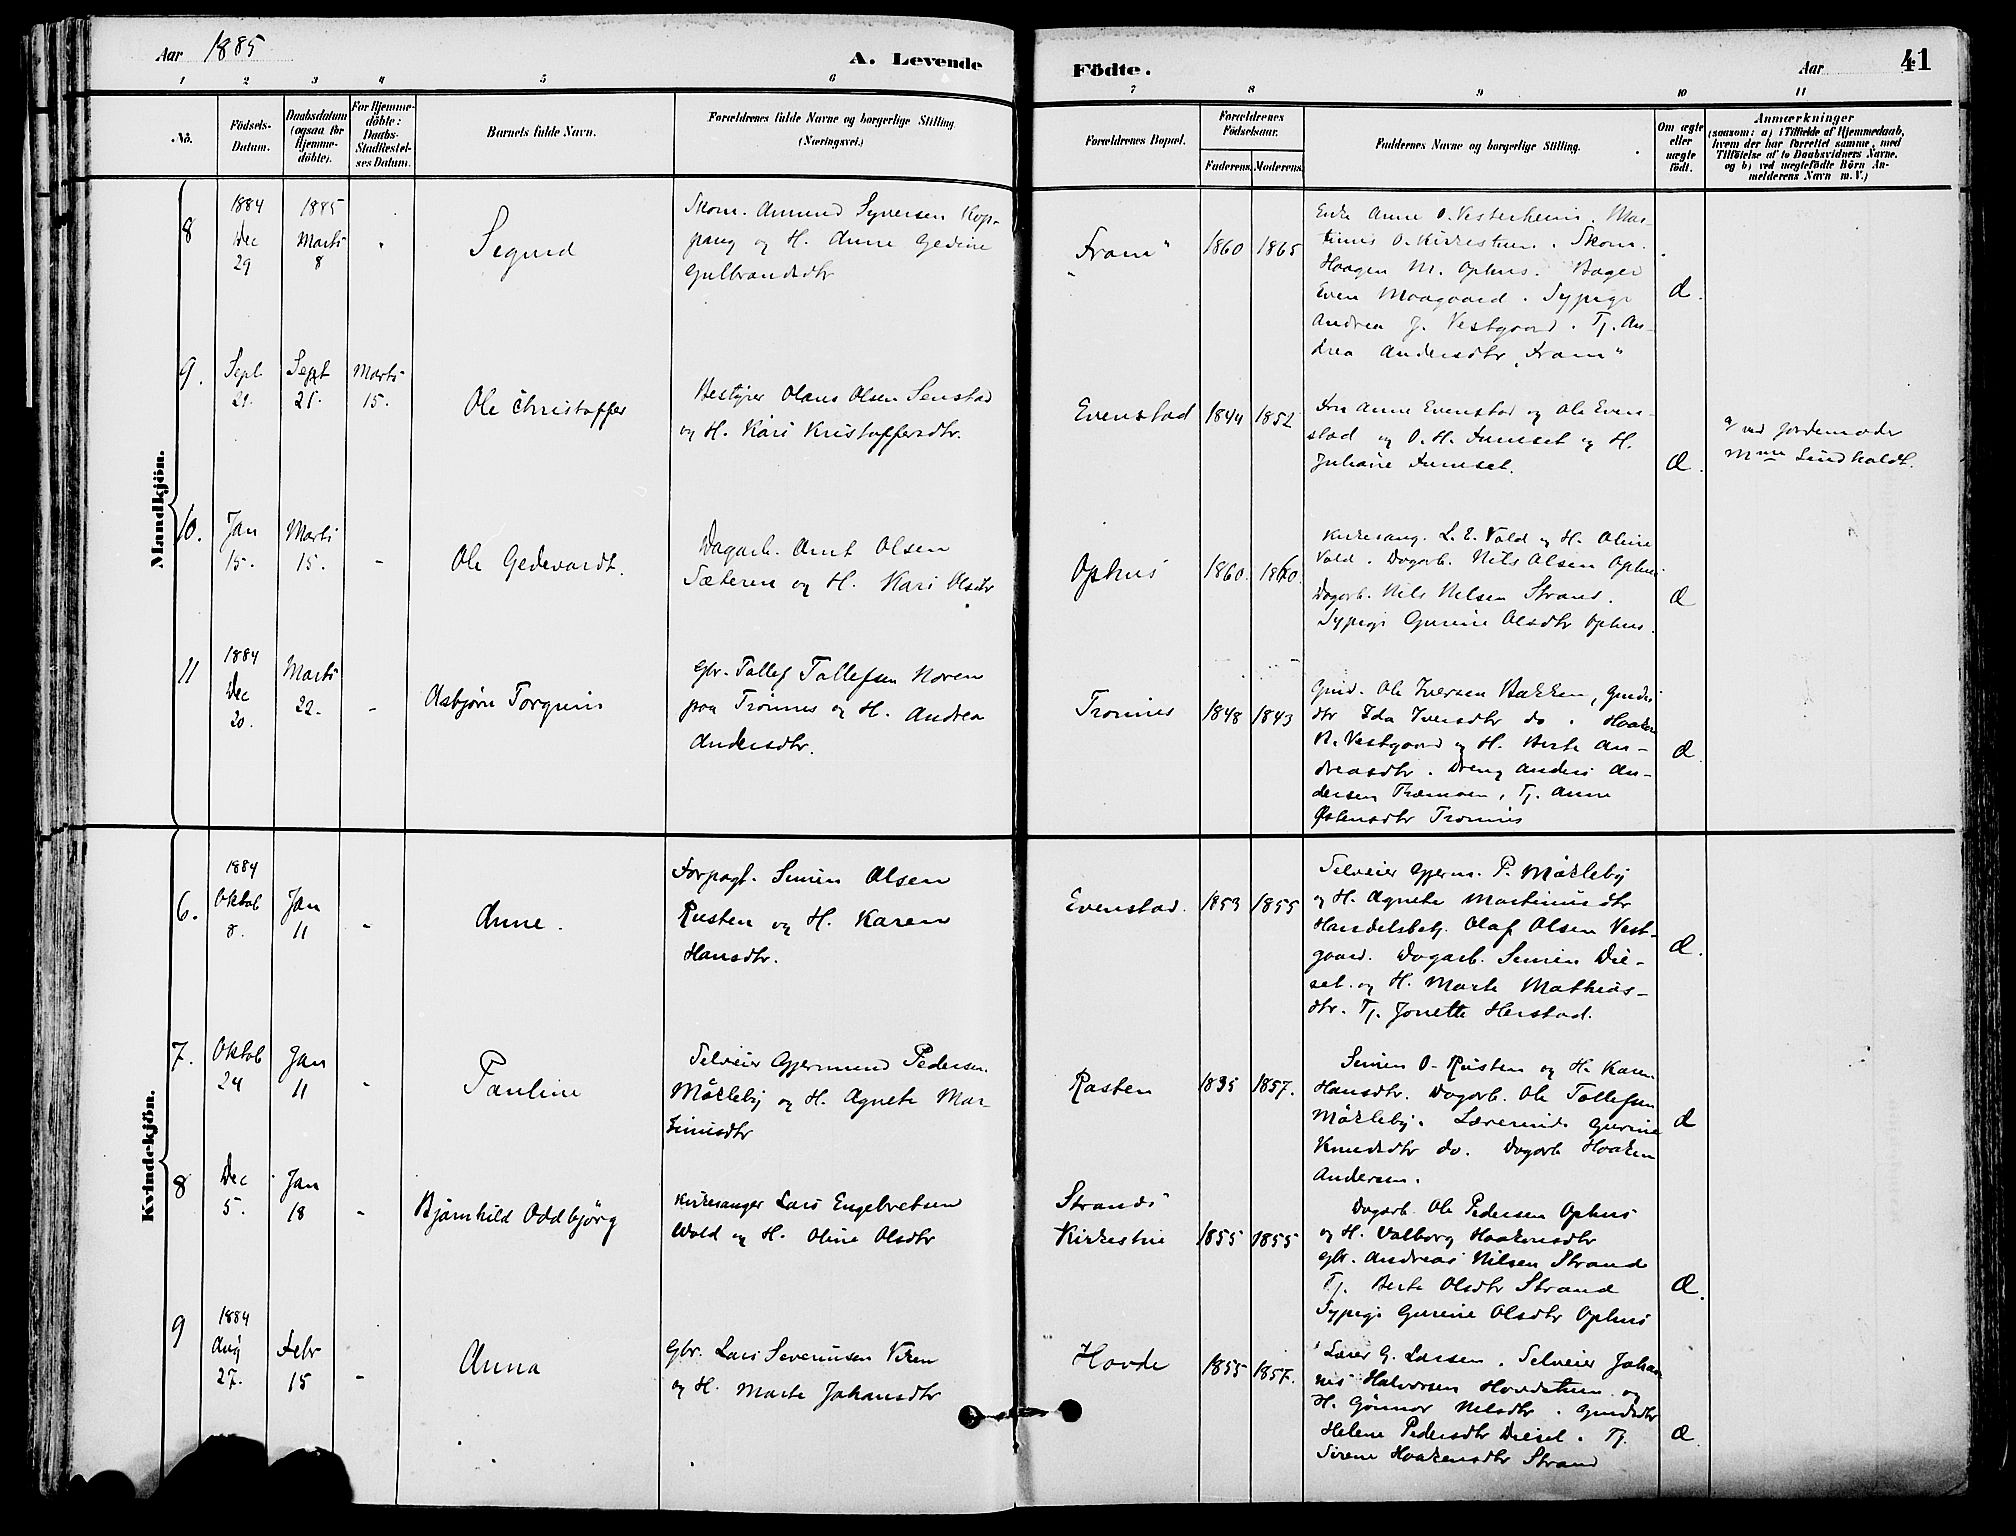 Aar 1885
A. Levende
Födte.
Aar
41
1 2 3 4 5 6 7 8 9 10 11
No.
Födsels-
Datum.
Daabsdatum
(ogsaa for
Hjemme-
döbte).
For Hjemme-
döbte:
Daabs-
Stadfæstel-
ses Datum.
Barnets fulde Navn.
Forældrenes fulde Navne og borgerlige Stilling
(Næringsvei.)
Forældrenes Bopæl.
Forældrenes
Födselsaar.
Faderens. Moderens.
Faddernes Navne og borgerlige Stilling.
Om ægte
eller
uægte
födt.
Anmærkninger
(saasom: a) i Tilfælde af Hjemmedaab,
hvem der har forrettet samme, med
Tilföielse af to Daabsvidners Navne,
og b) ved uægtefödte Börn An-
melderens Navn m. V.)
Mandkjön.
8
1884
Dec
29
1885
Marts
8
Sigurd
Skom. Amund Syversen Kop-
pang og H. Anne Gedine
Gulbrandsdtr
"Fram"
1860 1865
Enke Anne O. Vesterheim. Mar-
tinus O. Kirkestuen. Skom.
Haagen M. Ophus. Bager
Even Moagaard. Sypige
Andrea J. Vestgaard. Tj. An-
drea Andersdtr "Fram"
Æ.
9.
Sept
21.
Sept
21.
Marts
15.
Ole Christoffer
Bestyrer Olaus Olsen Senstad
og H. Kari Kristoffersdtr.
Evenstad
1844 1852
Fru Anne Evenstad og Ole Even-
stad og O. H. Furuset og H.
Juliane Furuset.
Æ.
a) ved Jordemoder
Mme Lindholdt.
10.
Jan
15.
Marts
15.
-
Ole Gedevardt.
Dagarb. Arnt Olsen
Sæteren og H. Kari Olsdtr
Ophus
1860. 1860.
Kirkesang. L. E. Vold og H. Oline
Vold. Dagarb. Nils Olsen Ophus
Dagarb. Nils Nilsen Strand.
Sypige Gurine Olsdtr Ophus.
Æ
11
1884
Dec
20.
Marts
22.
-
Asbjørn Torgrim
Gbr. Tollef Tollefsen Noren
paa Trønnes og H. Andrea
Andersdtr.
Trønnes
1848 1843
Gmd. Ole Iversen Bakken, Gmds
dtr Ida Iversdtr do. Haaken
N. Vestgaard og H. Berte An-
dreasdtr. Dreng Anders An-
dersen Træmoen, Tj. Anne
Østensdtr Trønnes
Æ.
Kvindekjön.
6.
1884
Oktob
8.
Jan
11
-
Anne.
Forpagt. Simen Olsen
Rusten og H. Karen
Hansdtr.
Evenstad.
1853 1855
Selveier Gjerm. P. Mökleby
og H. Agnete Martinusdtr
Handelsbetj. Olaf Olsen Vest-
gaard. Dagarb. Simen Die-
set og H. Marte Mathias-
dtr. Tj. Jonette Herstad.
Æ.
7.
Oktob
24
Jan
11
-
Pauline
Selveier Gjermund Pedersen
Mökleby og H. Agnete Mar-
tinusdtr
Rasten
1835 1857.
Simen O. Rusten og H. Karen
Hansdtr. Dagarb. Ole Tollefsen
Mökleby. Lærerinde Gurine
Knudsdtr do. Dagarb Haaken
Andersen.
Æ
8
Dec
5.
Jan
18
-
Bjarnhild Oddbjørg
Kirkesanger Lars Engebretsen
Wold og H. Oline Olsdtr
Strands
Kirkestue
1855 1855
Dagarb. Ole Pedersen Ophus
og H. Valborg Haakensdtr
Gbr. Andreas Nilsen Strand
Tj. Berte Olsdtr Strand
Sypige Gurine Olsdtr Ophus
Æ.
9
1884
Aug
27.
Febr
15
-
Anna
Gbr. Lars Severinsen Viken
og H. Marte Johansdtr
Hovde
1855 1857.
Lærer G. Larsen. Selveier Johan-
nes Halvorsen Hovdstuen og
H. Gönnor Nilsdtr. Gmdsdtr
Helene Pedersdtr Dieset. Tj.
Sirene Haakensdtr Strand
Æ